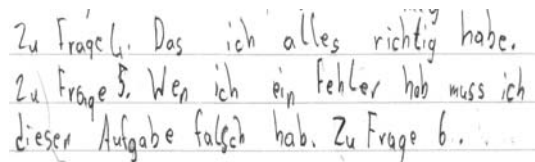 Zu Frage 4. Das ich alles richtig habe.
Zu Frage 5. Wen ich ein Fehler hab muss ich
dieser Aufgabe falsch hab. Zu Frage 6.